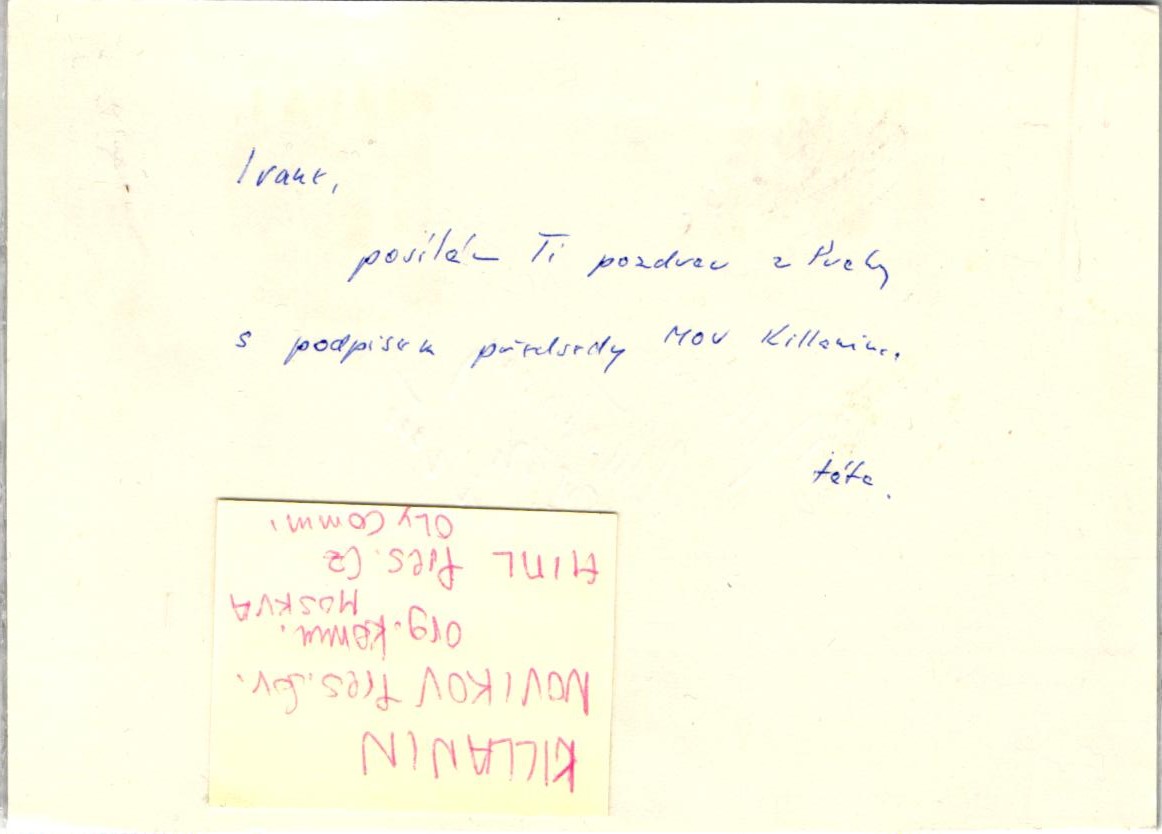 Ivane,
posílám Ti pozdrav z Prahy
s podpisem předsedy MOV Killanina.
táta.
KILLANIN
NOVIKOV Pres. Sov.
Org. Komm.
MOSKVA
HIML Pres. Cz
Oly Comm.